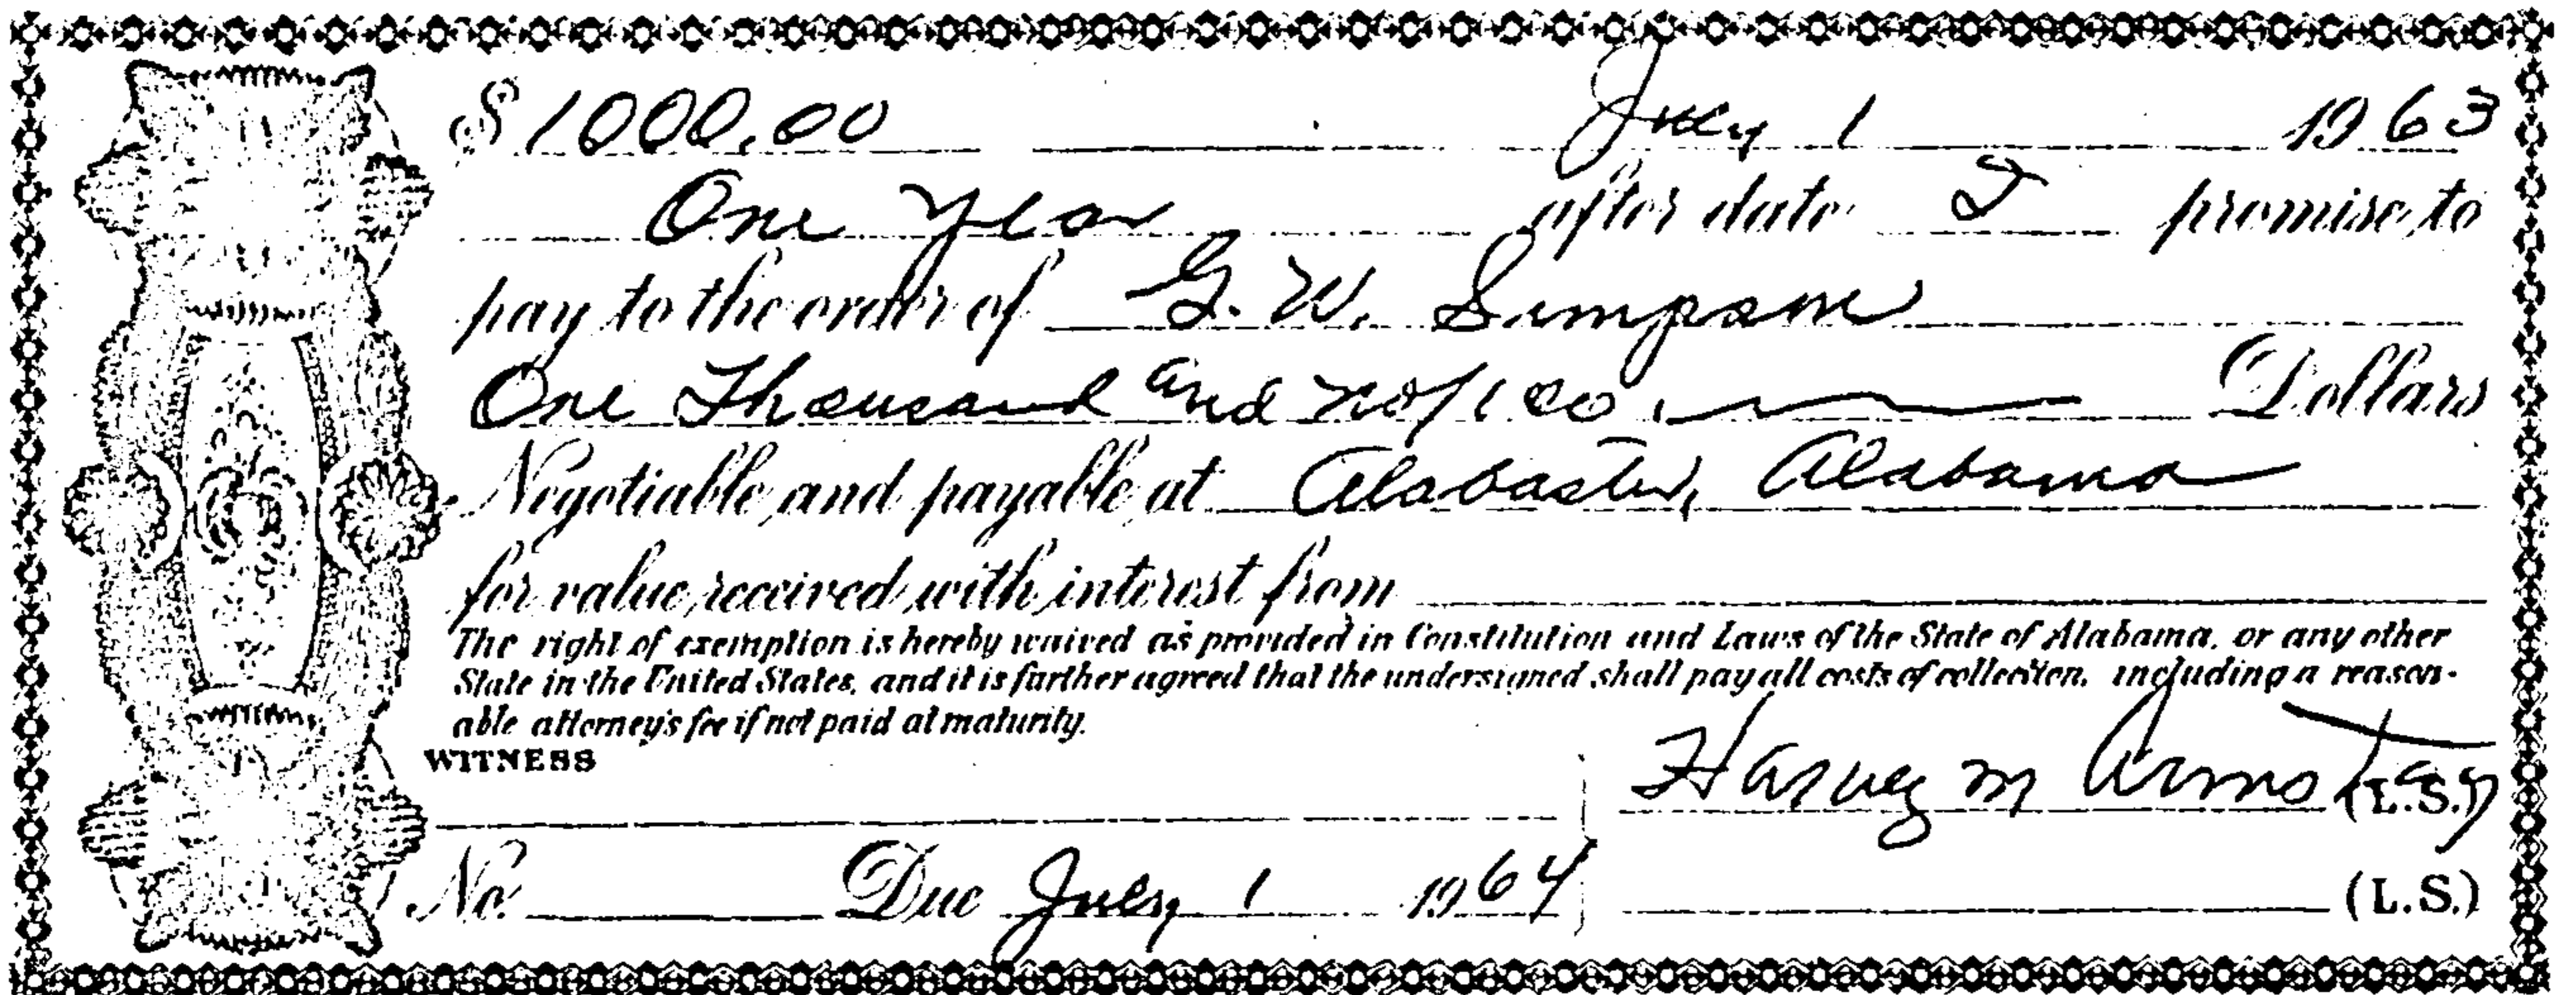 $ 1000.00 July 1 1963
One Year after date I promise to
pay to the order of G. W. Simpson
One Thousand and no/100 Dollars
Negotiable and payable at Alabaster, Alabama
for value received with interest from
The right of exemption is hereby waived as provided in Constitution and Laws of the State of Alabama, or any other
State in the United States, and it is further agreed that the undersigned shall pay all costs of collection, including a reason-
able attorney's fee if not paid at maturity.
WITNESS
Harvey M (L.S.)
No. Due July 1 1964
(L.S.)